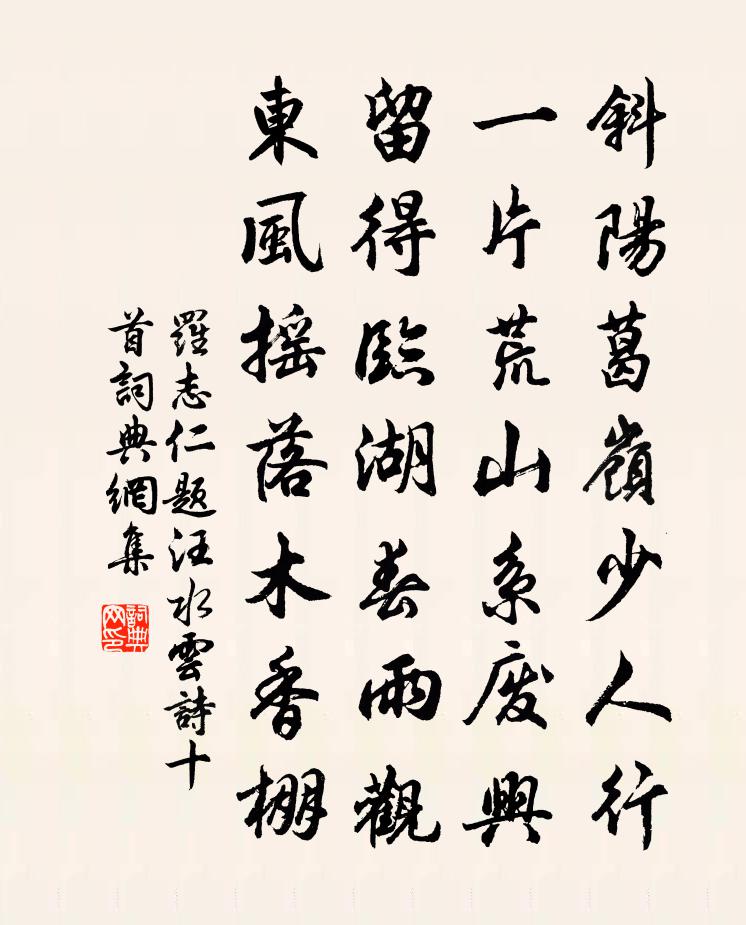 斜陽葛嶺少人行
一片荒山系废興
留得臨湖春雨觀
東風摇落木香棚
羅志仁题汪水雲詩十
首詞典網集
詞典网印